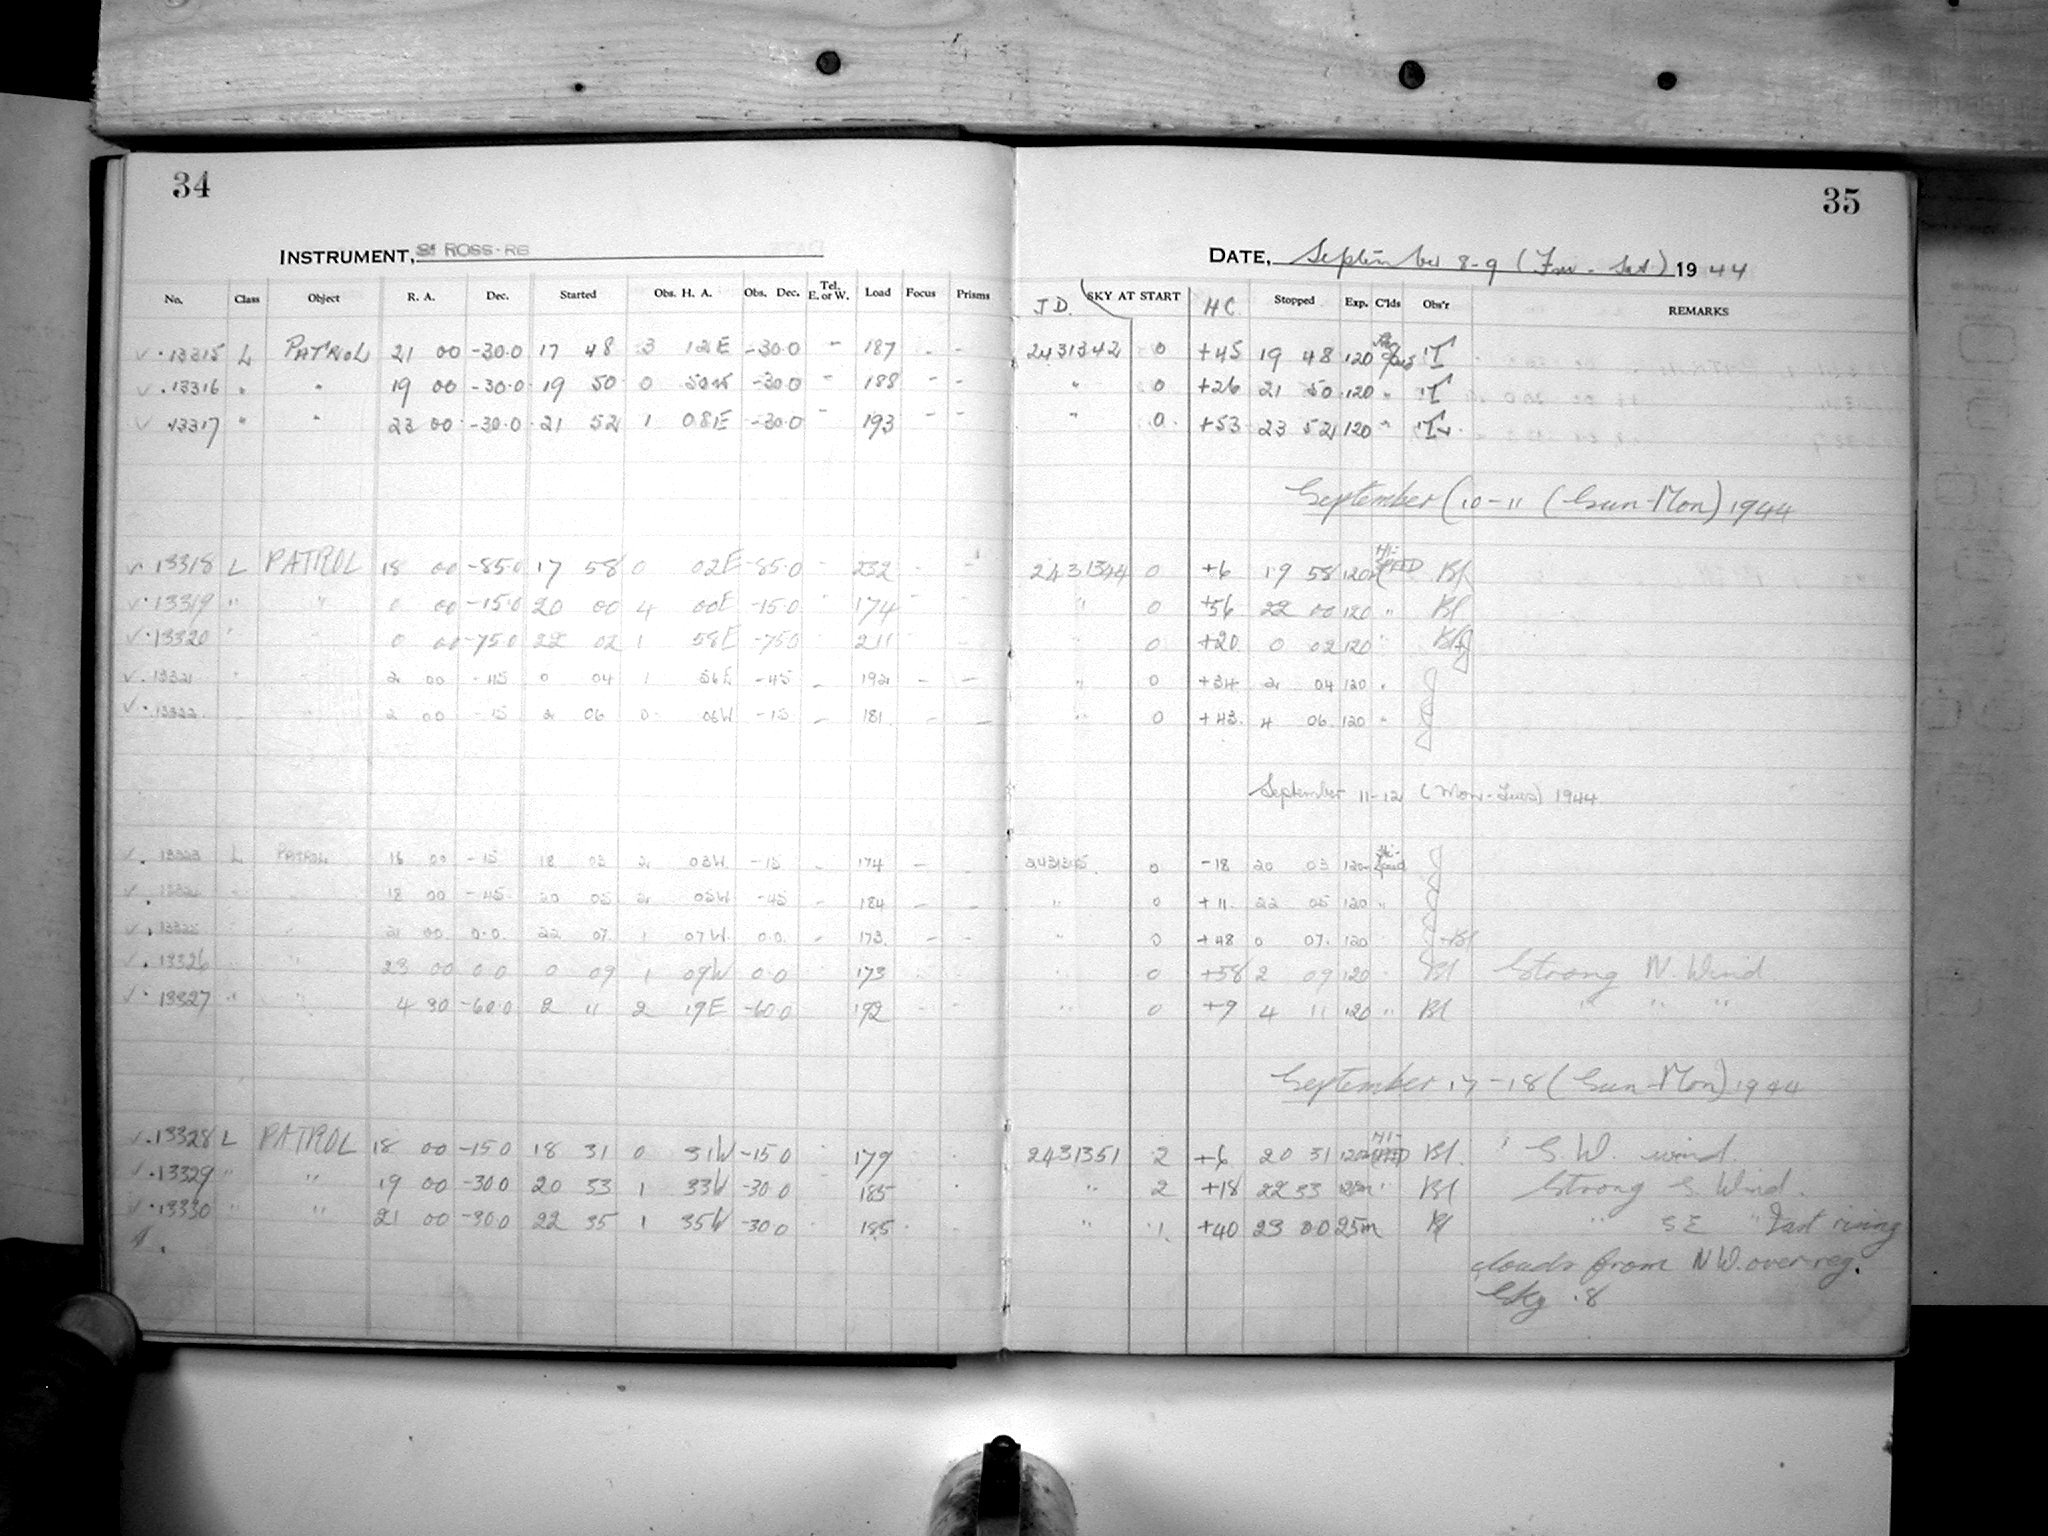 34
INSTRUMENT, ROSS-RB
No. Class Object R. A. Dec. Started Obs. H. A. Obs. Dec. Tel. E. or W. Load Focus Prisms
13315 L PATROL 21 00 -30.0 17 48 3 12E -30.0 - 187 - -
13316 " " 19 00 -30.0 19 50 0 50W -30.0 - 188 - -
13317 " " 23 00 -30.0 21 52 1 08E -30.0 - 193
13318 L PATROL 18 00 -85.0 17 58 0 02E -85.0 232 - -
13319 " " 0 00 -15.0 20 00 4 00E -15.0 174
13320 0 00 -75.0 22 02 1 58E -75.0 211
13321 2 00 -45 0 04 1 56E -45 - 192 - -
13322 2 00 -15 2 06 0 06W -15 - 181 - -
13323 L PATROL 16 00 -15 18 03 2 03W -15 - 174 -
18 00 -45 20 05 2 05W -45 - 184 - -
13325 21 00 0.0 22 07 1 07W 0.0 - 173 - -
13326 " 23 00 0.0 0 09 1 09W 0.0 173
13327 " " 4 30 -60.0 2 11 2 19E -60.0 192
13328 L PATROL 18 00 -15.0 18 31 0 31W -15.0 179
13329 " " 19 00 -30.0 20 33 1 33W -30.0 185
13330 " " 21 00 -30.0 22 35 1 35W -30.0 185
35
DATE, September 8-9 (Fri. - Sat.) 1944
J D. SKY AT START H C Stopped Exp. C'lds Obs'r REMARKS
2431342 0 +45 19 48 120
" 0 +26 21 50 120 "
" 0 +53 23 52 120 "
September (10-11 (Sun-Mon) 1944
2431344 0 +6 19 58 120m HI-SPEED Bl
" 0 +56 22 00 120 " Bl
" 0 +20 0 02 120 "
" 0 +34 2 04 120 "
" 0 +43 4 06 120 "
September 11-12 (Mon-Tues) 1944
2431345 0 -18 20 03 120m Hi-Speed
" 0 +11 22 05 120 "
" 0 +48 0 07 120
" 0 +58 2 09 120 " Bl Strong N. Wind
" 0 +9 4 11 120 " Bl " " "
September 17-18 (Sun-Mon) 1944
2431351 2 +6 20 31 120m HI-SPEED Bl S. W. wind.
" 2 +18 22 33 120m " Bl Strong S. Wind.
" 1 +40 23 00 25m Bl " SE " Fast rising
clouds from N W. over reg.
Sky .8